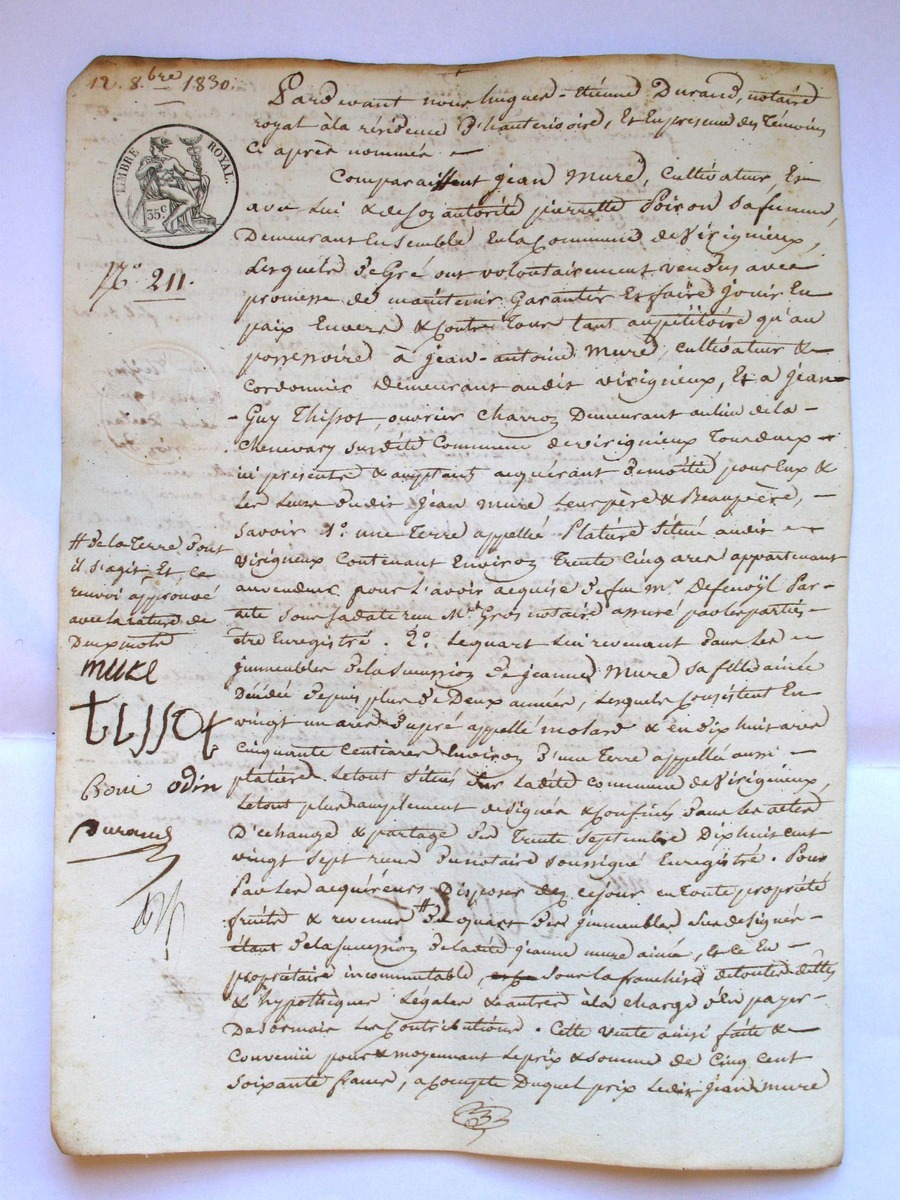 12. 8.bre 1830.
TIMBRE ROYAL.
35c
No. 211.
Pardevant nous hugues-Etienne Durand, notaire
royal à la résidence d'hauterivoire, et en presence des Témoins
ci après nommés. -
Comparaissent jean Mure, cultivateur Et
avec Lui & de son autorité pierrette Poiron sa femme,
Demeurant Ensemble En la Commune de Virignieux,
Lesquels de Gré ont volontairement vendus avec
promesse de maintenir Garantir Et faire jouir En
paix Envers & Contre Tous tant au pétitoire qu'au
possessoire à jean-antoine Mure, cultivateur &
Cordonnier Demeurant audit virignieux, Et a jean-
- Guy Thissot, ouvrier Charron Demeurant au lieu de la
Chenevary susdite Commune de virignieux Tous deux -
ici présents & acceptants acquérant de moitié pour Eux &
Les Leurs dudit jean Mure Leur père & Beaupère, -
Savoir 1o. une Terre appellée Platière Située audit -
Virignieux Contenant Environ Trente Cinq ares appartenant
au vendeur pour L'avoir acquise de feu mr. Defenoÿl Par
acte Sous sa date reçu Me. Gros notaire assuré par les parties -
être Enregistré. 2o. Le quart Lui revenant dans Les -
jmmeubles de la Succession de jeanne Mure sa fille ainée
Décédée depuis plus de Deux années, Lesquels Consistent En
vingt un ares d'un pré appellé molard & en dix huit ares
Cinquante Centiares Environ d'une Terre appellée aussi -
platière Le tout Situés sur Ladite commune de Virignieux,
Le tout plus amplement designés & Confinés dans Les actes
D'echange & partage du Trente Septembre Dix huit cent
vingt Sept reçus du notaire soussigné Enregistré. Pour
Par Les acquéreurs Disposer dez ce jour en toute propriété
fruits & revenus # du quart des jmmeubles Susdesignés
étant de la Succession de ladite jeanne mure ainée, Et Le En -
propriétaire incommutable sous la franchise de toutes dettes
& d'hypothèques Légales & autres à la charge d'en payer
Desormais Les Contributions. Cette vente ainsi faite &
Convenüe pour & moyennant Le prix & somme de Cinq Cent
Soixante francs, a Compte Duquel prix Ledit jean Mure
# de la Terre dont
il s'agit, Et, Ce
renvoi approuvé
avec la rature de
Deux mots
mure
tissot
odin
Durand